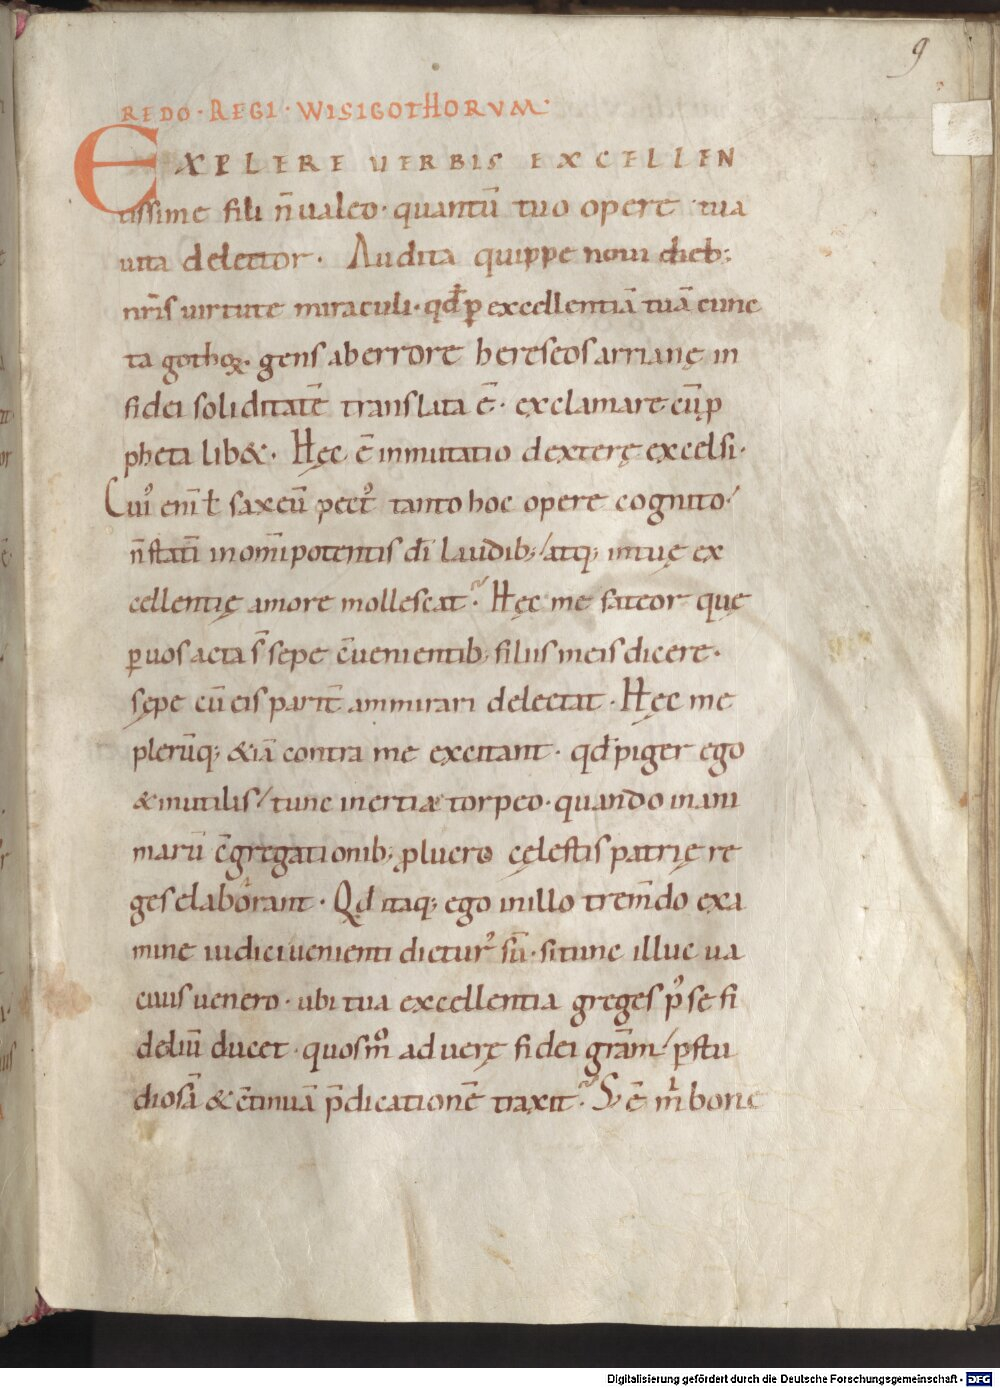 9
REDO · REGI · WISIGOTHORVM·
EXPLERE VERBIS EXCELLEN
tissime fili n̄ ualeo · quantū tuo opere tua
uita delector · Audita quippe noui dieb;
nr̄is uirtute miraculi · qđ ꝑ excellentiā tuā cunc
ta gothoꝝ · gens ab errore hereseos arrianę in
fidei soliditatē translata ē · exclamare cū ꝓ
pheta lib& · Hęc ē inmutatio dexterę excelsi ·
Cui᾽ enī ł saxeū pect᾽ tanto hoc opere cognito
n̄ statī in om̄ipotentis dī laudib; / atq; in tuę ex
cellentię amore mollescat · Hęc me fateor quę
ꝑ uos acta s̄ sepe c̄uenientib; filiis meis dicere ·
sępe cū eis parit̄ ammirari delectat · Hęc me
plerūq; &iā contra me excitant · qđ piger ego
& inutilis / tunc inertiæ torpeo · quando in ani
marū c̄gregationib; ꝓ lucro cęlestis patrię re
ges elaborant · Qd itaq; ego in illo trem̄do exa
mine iudici uenienti dictur᾽ sū · si tunc illuc ua
cuus uenero · ubi tua excellentia greges p᾽ se fi
deliū ducet · quos m̊ ad uerę fidei grām / ꝑ stu
diosā & c̄tinuā p̄dicationē traxit · S; ē m̄ bone
Digitalisierung gefördert durch die Deutsche Forschungsgemeinschaft - DFG